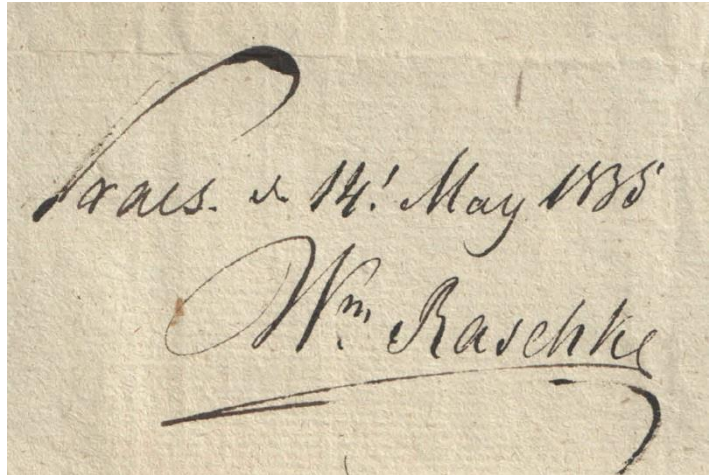 Praes. d. 14t May 1835
Wm Raschke